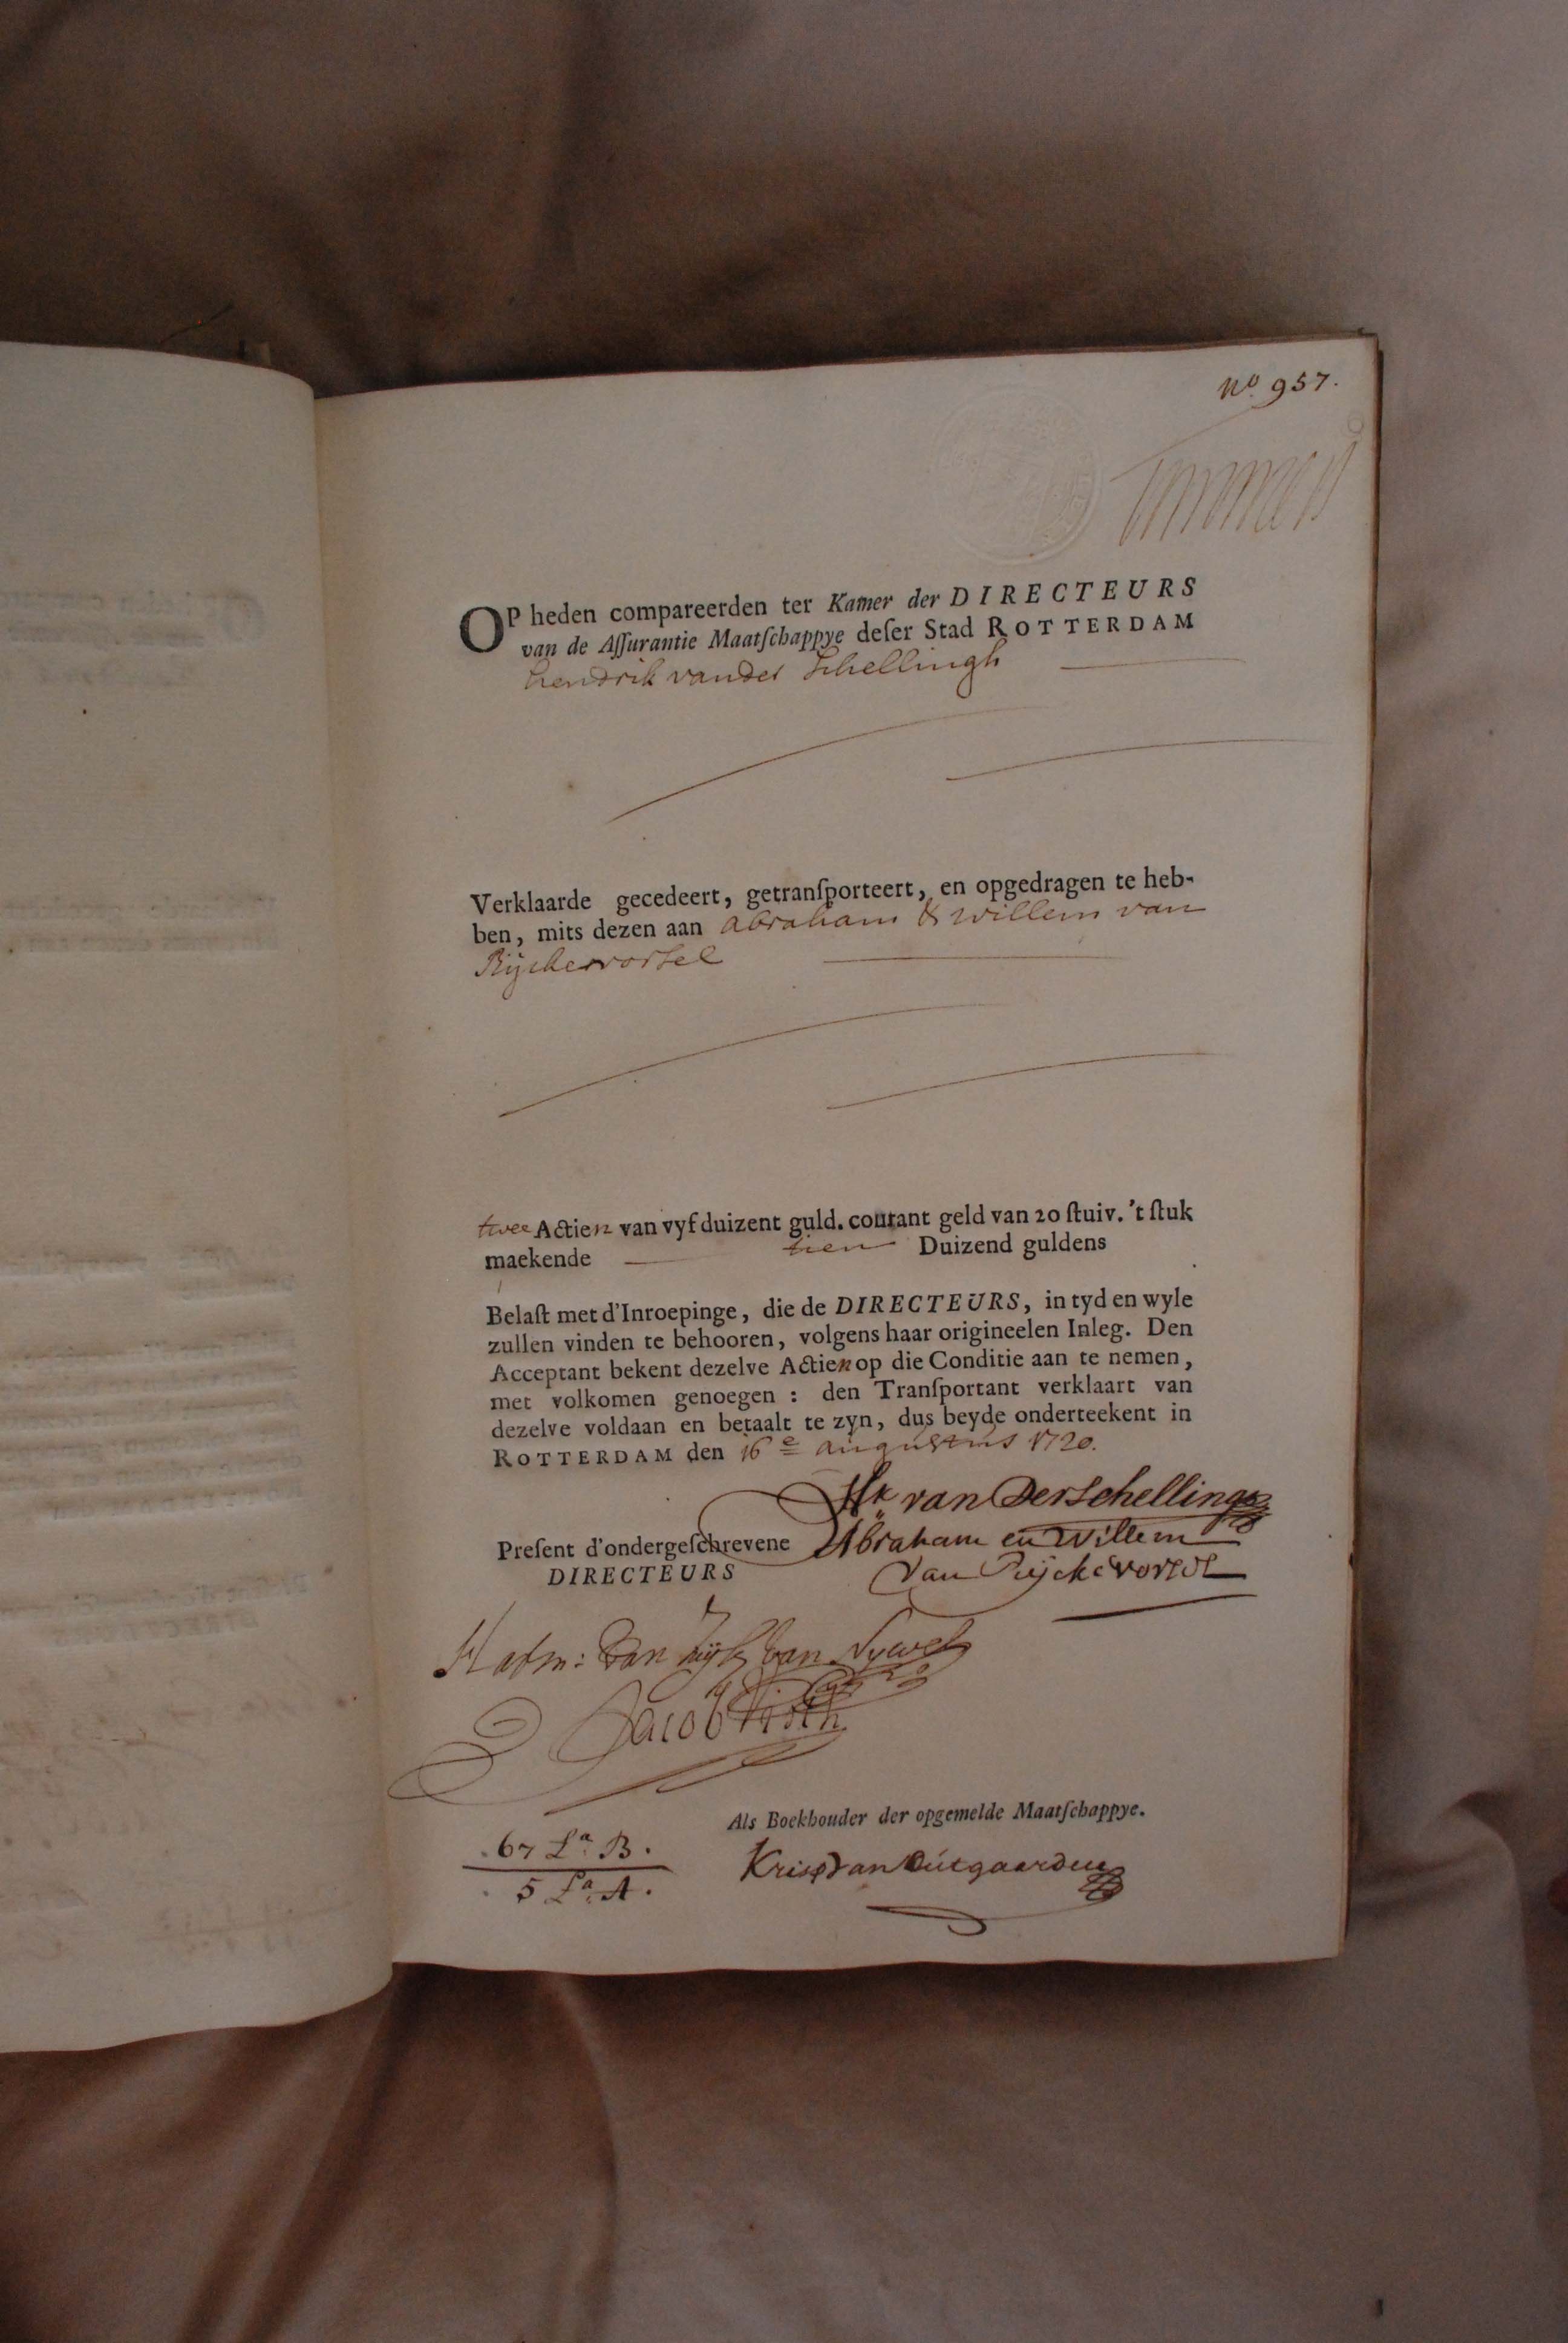 No. 957.
OP heden compareerden ter Kamer der DIRECTEURS
van de Aſſurantie Maatſchappye deſer Stad ROTTERDAM
hendrik vander Schellingh
Verklaarde gecedeert, getranſporteert, en opgedragen te heb-
ben, mits dezen aan abraham & willem van
Rijckevorsel
twee Actien van vyf duizent guld. courant geld van 20 ſtuiv. 't ſtuk
maekende tien Duizend guldens
Belaſt met d'Inroepinge, die de DIRECTEURS, in tyd en wyle
zullen vinden te behooren, volgens haar origineelen Inleg. Den
Acceptant bekent dezelve Actien op die Conditie aan te nemen,
met volkomen genoegen : den Tranſportant verklaart van
dezelve voldaan en betaalt te zyn, dus beyde onderteekent in
ROTTERDAM den 16e augustus 1720.
Hk van Der Schellingh
Abraham en Willem
Van Rijckevorsel
Preſent d'ondergeſchrevene
DIRECTEURS
van Zuijl van Nyvelt
Jacob Visch
Als Boekhouder der opgemelde Maatſchappye.
67 La. B.
5 La. A.
Kris van Outgaarden